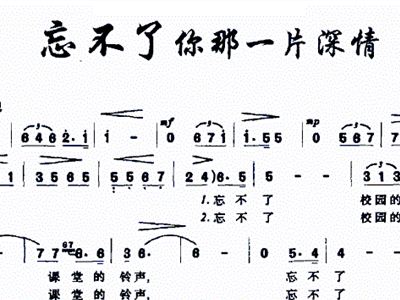 忘不了你那一片深情
mf mp
3 3 3
6 4 6 2· i | i - | 0 6 7 i | i· 5 5 | 0 5 6 7
3 5 6 5 | 5 5 6 7 | 2 4) 6· 5 | 5 - | - | 3 1 3
1.忘 不 了 校园的
2.忘 不 了 校园的
7 7 67 6· 6 | 3 6· | 6 - | 0 5· 4 | 4 -
课 堂 的 铃声, 忘 不 了
课 堂 的 铃声, 忘 不 了